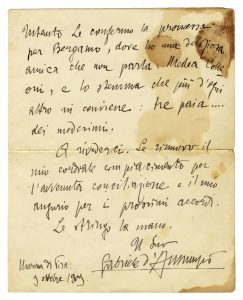 Intanto Le confermo la promessa
per Bergamo, dove ho una
amica che non parla: Medea Colle
oni, e lo stemma che più d'ogni
altro mi conviene: tre paia....
dei medesimi.
A rivederci. Le rinnovo il
mio cordiale compiacimento per
l'avvenuta conciliazione e il mio
augurio per i prossimi accordi.
Le stringo la mano.
Il suo
Gabriele d'Annunzio
Marina di Pisa:
9 ottobre 1909